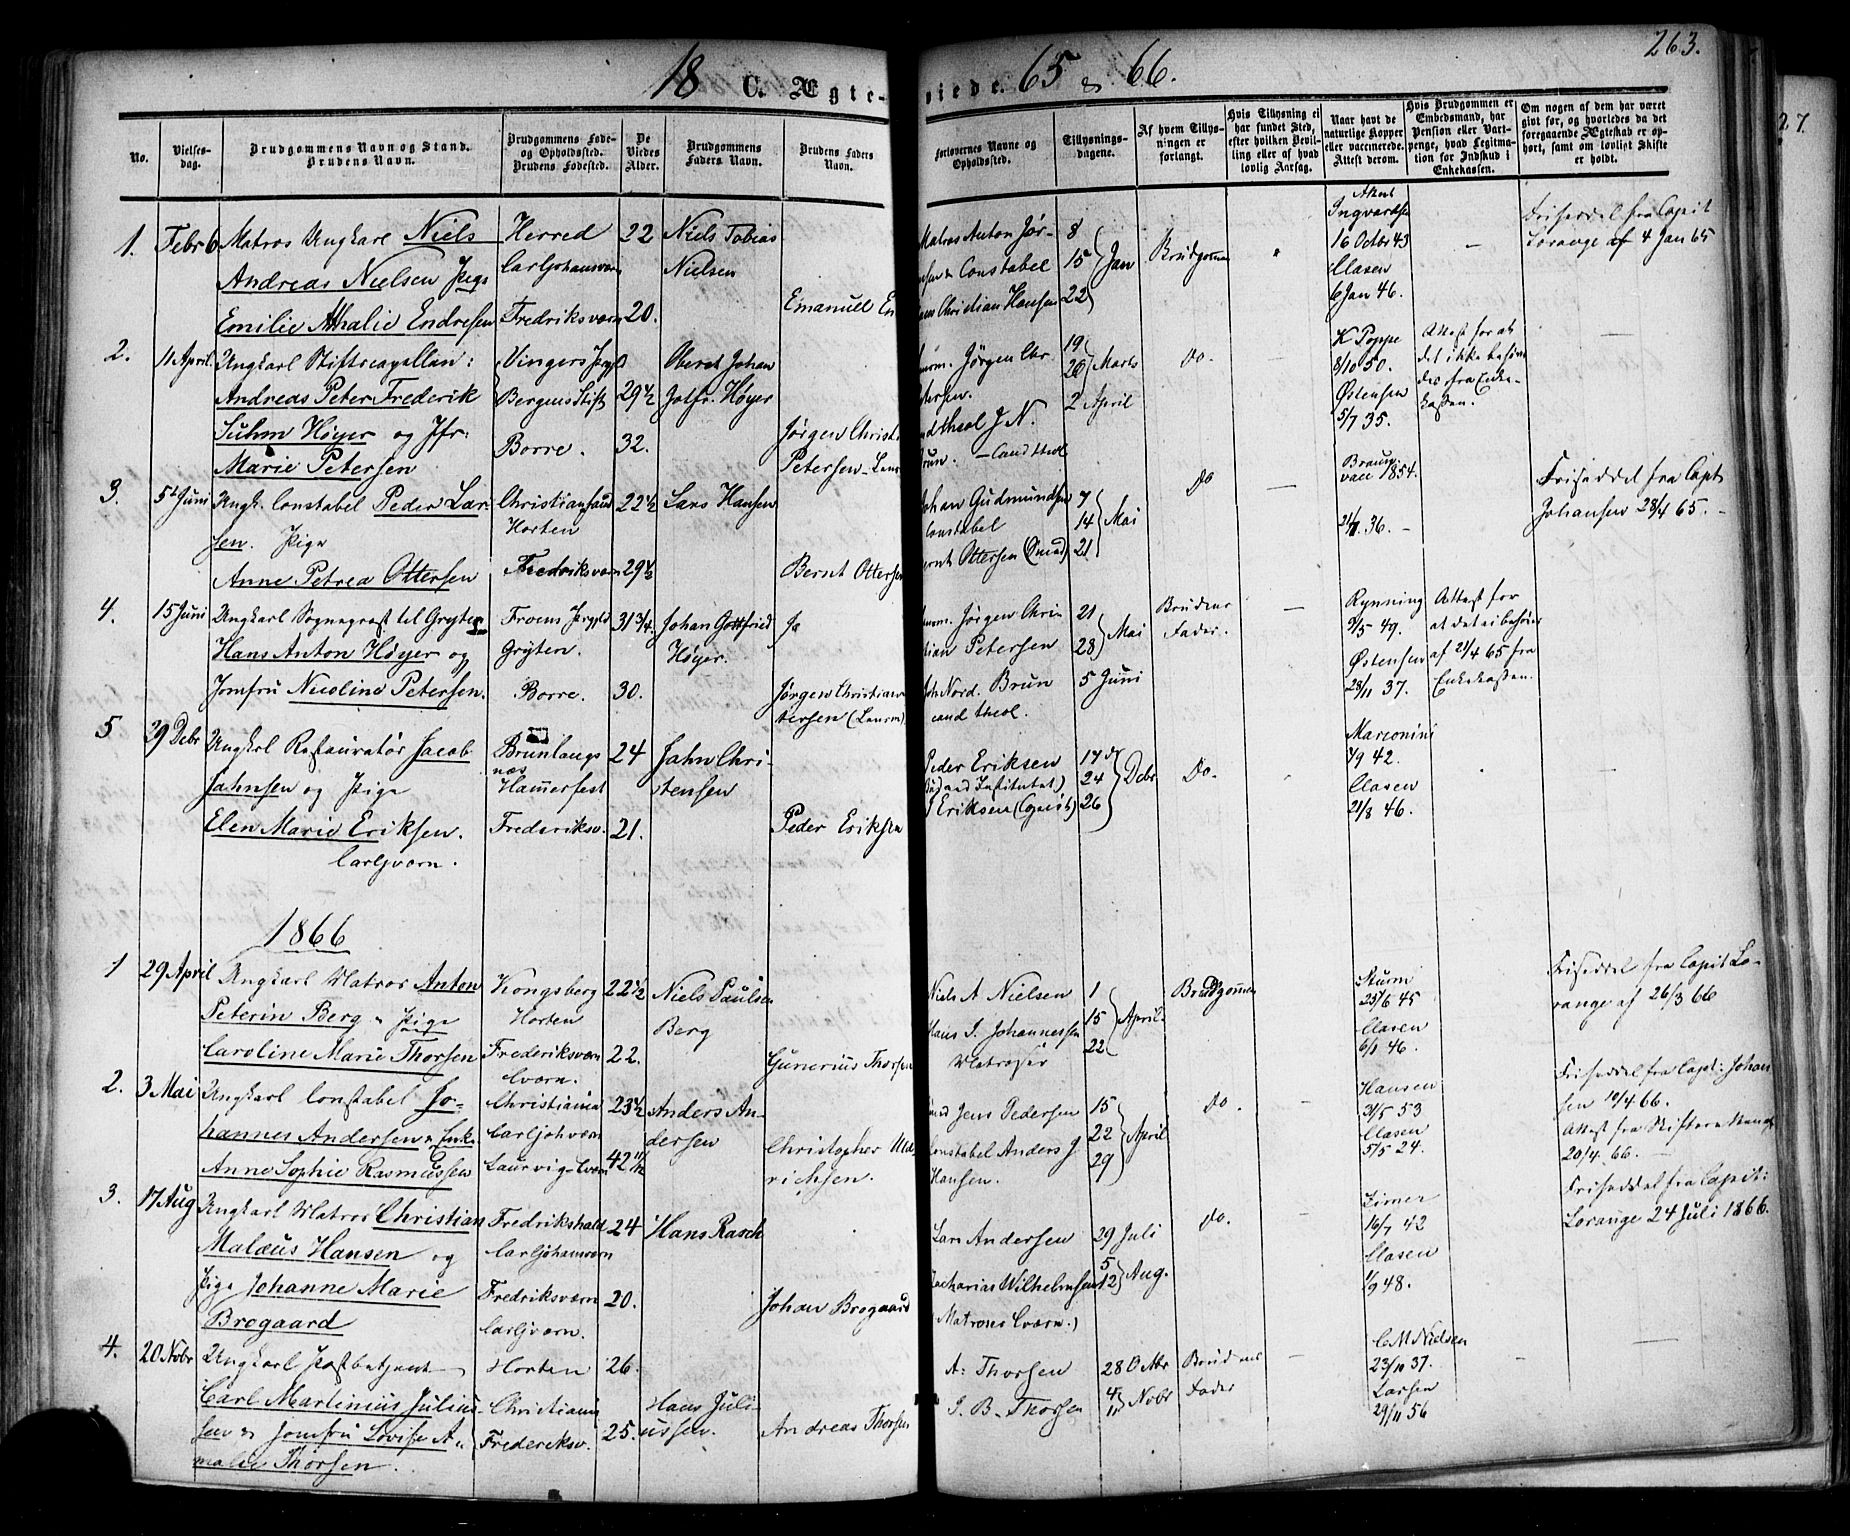 263.
18 C. Ægteviede. 65 & 66.
No.
Vielsesdag.
Brudgommens Navn og Stand.
Brudens Navn.
Brudgommens Føde- og Opholdssted.
Brudens Fødested.
De Viedes Alder.
Brudgommens Faders Navn.
Brudens Faders Navn.
Forlovernes Navne og Opholdssted.
Tillysningsdagene.
Af hvem Tillysningen er forlangt.
Hvis Tillysning ei har fundet Sted, efter hvilken Bevilling eller af hvad lovlig Aarsag.
Naar havt de naturlige Kopper eller vaccinerede. Attest derom.
Hvis Brudgommen er Embedsmand, har Pension eller Vartpenge, hvad Legitimation for Indskud i Enkekassen.
Om nogen af dem har været givt før, og hvorledes da det foregaaende Ægteskab er ophørt, samt om lovligt Skifte er holdt.
1. Febr 6 Matros Ungkarl Niels Herred 22 Niels Tobias Matros Anton Jør- 8 Ingvardsen Friseddel fra Capit
Andreas Nielsen Pige Carljohansværn Nielsen Constabel 15 Jan Brudgommen 16 Octbr 43 Lorange af 4 Jan 65
Clasen
Emilie Athalie Endresen Fredriksværn 20. Emanuel En Christian Hansen 22 6 Jan 46.
2. 11 April. Ungkarl Stiftscapellan: Vingers Oberst Johan Jørgen Chr. 19 Do. K Poppe Attest for at
Andreas Peter Frederik Bergens Stift 29½ Gotfr. Høyer tersen. 26 Marts 8/10 50. det ikke behøves
2 April Østensen fra Enkekassen.
Suhm Høyer og Jfr: Borre. 32. Jørgen Christ 5/7 35.
Marie Petersen Petersen Cand theol
3. 5t Juni Ungk. Constabel Peder Lar- Christianssand 22½ Lars Hansen Johan Gudmundsen 7 Do vacc 1854. Friseddel fra Capt
sen. Pige Horten Constabel 14 Mai Johansen 28/4 65.
Anne Petrea Ottersen Fredriksværn 29½ Bernt Ottersen Bernt Ottersen (Smed) 21 36.
4. 15 Juni Ungkarl Sognepræst til Gryten Froens Prgjld 31¾. Johan Gottfried Jørgen Chri- 21 Brudens Rynning Attest for
Hans Anton Høyer og Gryten. Høyer. tian Petersen 28 Mai Fader. 9/5 49. at det ei behøves
Østensen af 21/4 65 fra
Jomfru Nicoline Petersen. Borre. 30. Jørgen Christian Joh Nord. Brun 5 Juni 28/11 37. Enkekassen.
tersen cand theol.
5 29 Debr Ungkrl Restauratør Jacob Brunlaugnæs 24 Jahn Chri- Peder Eriksen 17 Debr Do. 1/9 42.
Jahnsen og Pige Hammerfest stensen 24 Clasen
Elen Marie Eriksen. Frederiksv. 21. Peder Eriksen Eriksen 26 21/8 46.
Carljværn.
1866
1 29 April Ungkarl Matros Anton Kongsberg 22½ Niels Paulsen Niels A Nielsen 1 Brudgommen Sturm Friseddel fra Capit Lo-
Peterin Berg & Pige Horten Berg Hans S. Johannessen 15 April 25/6 45 range af 26/3 66
Clasen
Caroline Marie Thorsen Frederiksværn 22. Gunerius Thorsen Matroser 22 6/1 46.
Cværn.
2. 3 Mai Ungkarl Constabel Jo- Christiania 23½ Anders An- Jens Pedersen 15 Do. Hansen Friseddel fra Capt: Johan
hannes Andersen & Enke Carljohværn dersen Constabel Anders J 22 April 31/5 53 sen 10/4 66.
Clasen Attest fra Skifteretten
Anne Sophie Rasmussen Laurvig Cværn 42 Christopher Hansen. 29 5/5 24. 20/4 66.
richsen.
3. 17 Aug Ungkarl Matros Christian Fredrikshald 24 Hans Rasch Lars Andersen 29 Juli Do. 16/7 42 Friseddel fra Capit:
Malæus Hansen og Carljohansværn 5 Clasen Lorange 24 Juli 1866.
Pige Johanne Marie Fredriksværn 20. Johan Brogaard Zacharias Wilhelmsen 12 Aug. 1/9 48.
Brogaard Carljværn. Matroser Cværn.)
4. 20 Nobr Ungkarl Postbetjent Horten 26. A: Thorsen 28 Octbr Brudens C M Nielsen
23/10 37.
Carl Martinius Julius- Christiania Hans Juli- S. B. Thorsen Nobr Fader Larsen
sen & Jomfru Lovise A- Frederiksv. 25. ussen. Andreas Thorsen 29/11 56
malie Thorsen.
27.